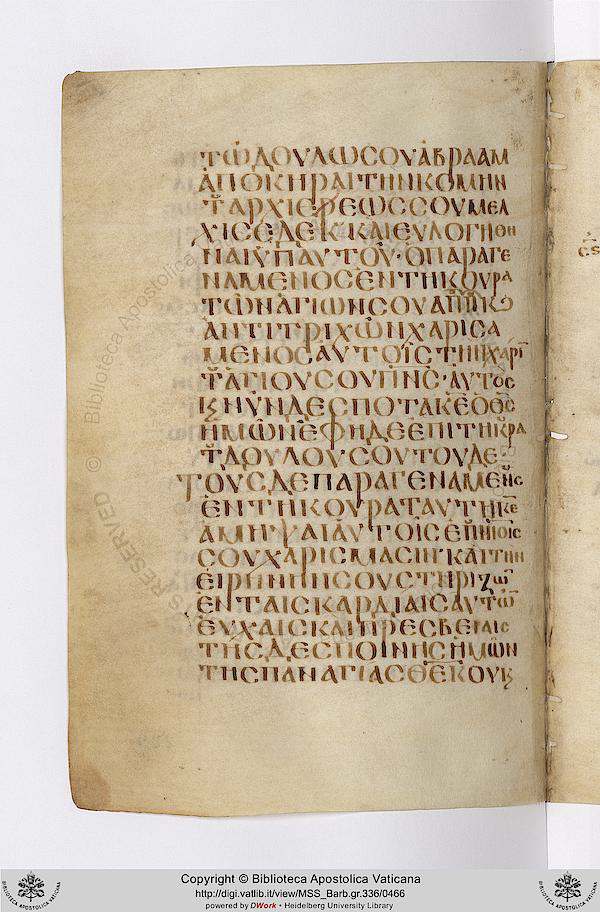 ΤῶΔΟΥΛΩΣΟΥἈΒΡΑΑΜ
ἈΠΟΚΗΡΑΙΤΗΝΚΟΜΗΝ
ΑΡΧΙΕΡΕΩΣΣΟΥΜΕΛ
ΧΙΣΕΔΕΚΚΑΙΕΥΛΟΓΗΘΗ
ΝΑΙΥΠΑΥΤΟΥ·ΟΠΑΡΑΓΕ
ΝΑΜΕΝΟΣΕΝΤΗΚΟΥΡΑ
ΤΩΝΑΓΙΩΝΣΟΥ
ΑΝΤΙΤΡΙΧΩΝΧΑΡΙΣΑ
ΜΕΝΟΣΑΥΤΟΙΣΤΗΝΧΑΡΙ
ΑΓΙΟΥΣΟΥΠΝΣ·ΑΥΤΟΣ
ΝΥΝΔΕΣΠΟΤΑΚΕΟΘΣ
ΗΜΩΝΕΦΗΔΕΕΠΙΤΗΚΡΑ
ΔΟΥΛΟΥΣΟΥΤΟΥΔΕ·
ΤΟΥΣΔΕΠΑΡΑΓΕΝΑΜΕΝΣ
ΕΝΤΗΚΟΥΡΑΤΑΥΤΗΚΕ
ΑΜΗΨΑΙΑΥΤΟΙΣ
ΣΟΥΧΑΡΙΣΜΑΣΙΝ·ΚΑΙΤΗΝ
ΕΙΡΗΝΗΝΣΟΥΣΤΗΡΙΖΩ
ΕΝΤΑΙΣΚΑΡΔΙΑΙΣΑΥΤΩ
ΕΥΧΑΙΣΚΑΙΠΡΕΣΒΕΙΑΙΣ
ΤΗΣΔΕΣΠΟΙΝΗΣΗΜΩΝ
ΤΗΣΠΑΝΑΓΙΑΣΘΕΚΟΥΚ
Biblioteca Apostolica
© RESERVED
Copyright © Biblioteca Apostolica Vaticana
http://digi.vatlib.it/view/MSS_Barb.gr.336/0466
powered by DWork • Heidelberg University Library